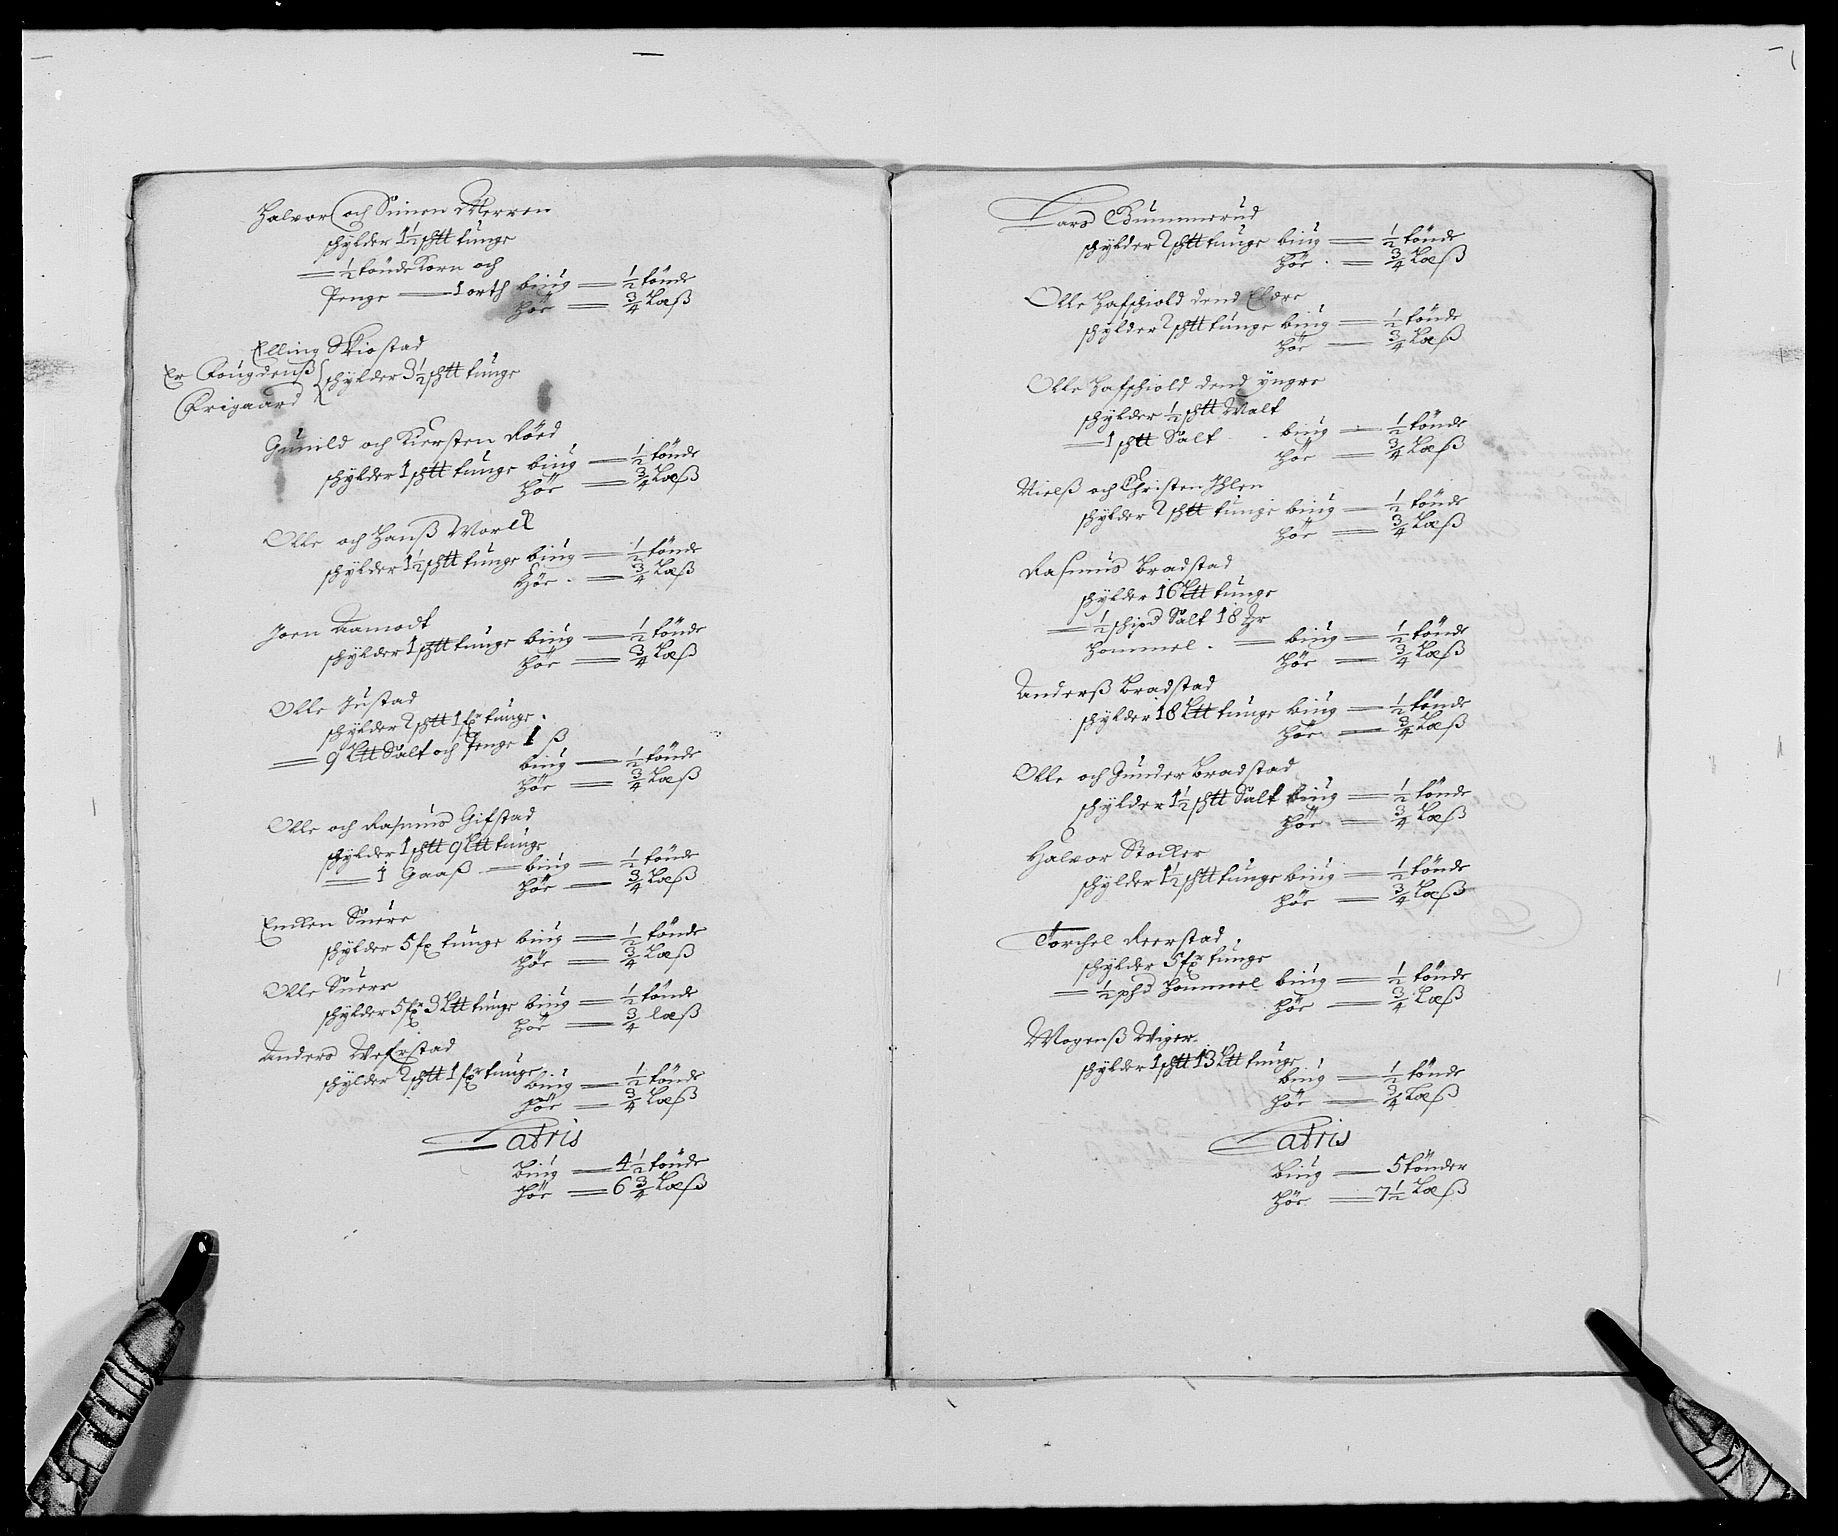 Halvor och Simen Merren
schylder 1½ sht tunge
— ½ tönde Korn och
Penge — 1 orth biug — ½ tönde
Höe — ¾ Læß
Elling Skiostad
Er Fougdenß
schylder 3½ sht tunge
Frigaard
Gunild och Kiersten Röed
schylder 1 sht tunge biug — ½ tönde
Höe — ¾ Læß
Olle och Hanß Woll
schylder 1½ sht tunge biug — ½ tönde
Höe — ¾ Læß
Joen Aamodt
schylder 1 sht tunge biug — ½ tönde
Höe — ¾ Læß
Olle Justad
schylder 2 sht 1 fx tunge
— 9 Ltt Salt och Penge 1 ß
biug — ½ tönde
Höe — ¾ Læß
Olle och Rasmus Gifstad
schylder 1 sht 9 Ltt tunge
— 1 Gaaß — biug — ½ tönde
Höe — ¾ Læß
Endten Suere
schylder 5 fx tunge biug — ½ tönde
Höe — ¾ Læß
Olle Suere
schylder 5 fx 3 Ltt tunge biug — ½ tönde
Höe — ¾ læß
Anders Wefrstad
schylder 2 sht 1 fx tunge
biug — ½ tönde
Höe — ¾ Læß
Latris
Biug — 4½ tönde
Höe — 6¾ Læß
Lars Gummerud
schylder 2 sht tunge biug — ½ tönde
Höe — ¾ Læß
Olle Hafschiold dend Eldre
schylder 2 sht tunge biug — ½ tönde
Höe — ¾ Læß
Olle Hafschiold dend yngre
schylder ½ sht Malt
— 1 sht Salt biug — ½ tönde
Höe — ¾ Læß
Nielß och Christen Jhlen
schylder 2 sht tunge biug — ½ tönde
Höe — ¾ Læß
Rasmus Bradstad
schylder 16 Ltt tunge
— ½ schipd Salt 18
Hommel — biug — ½ tönde
Höe — ¾ Læß
Anderß Bradstad
schylder 18 Ltt tunge biug — ½ tönde
Höe — ¾ Læß
Olle och Gunder Bradstad
schylder 1½ sht Salt biug — ½ tönde
Höe — ¾ Læß
Halvor Stocker
schylder 1½ sht tunge biug — ½ tönde
Höe — ¾ Læß
Torchel Reerstad
schylder 5 fx tunge
— ½ phd Hommel biug — ½ tönde
Höe — ¾ Læß
Mogenß Wiger
schylder 1 sht 13 Ltt tunge
biug — ½ tönde
Höe — ¾ Læß
Latris
Biug — 5 tönder
Höe — 7½ Læß